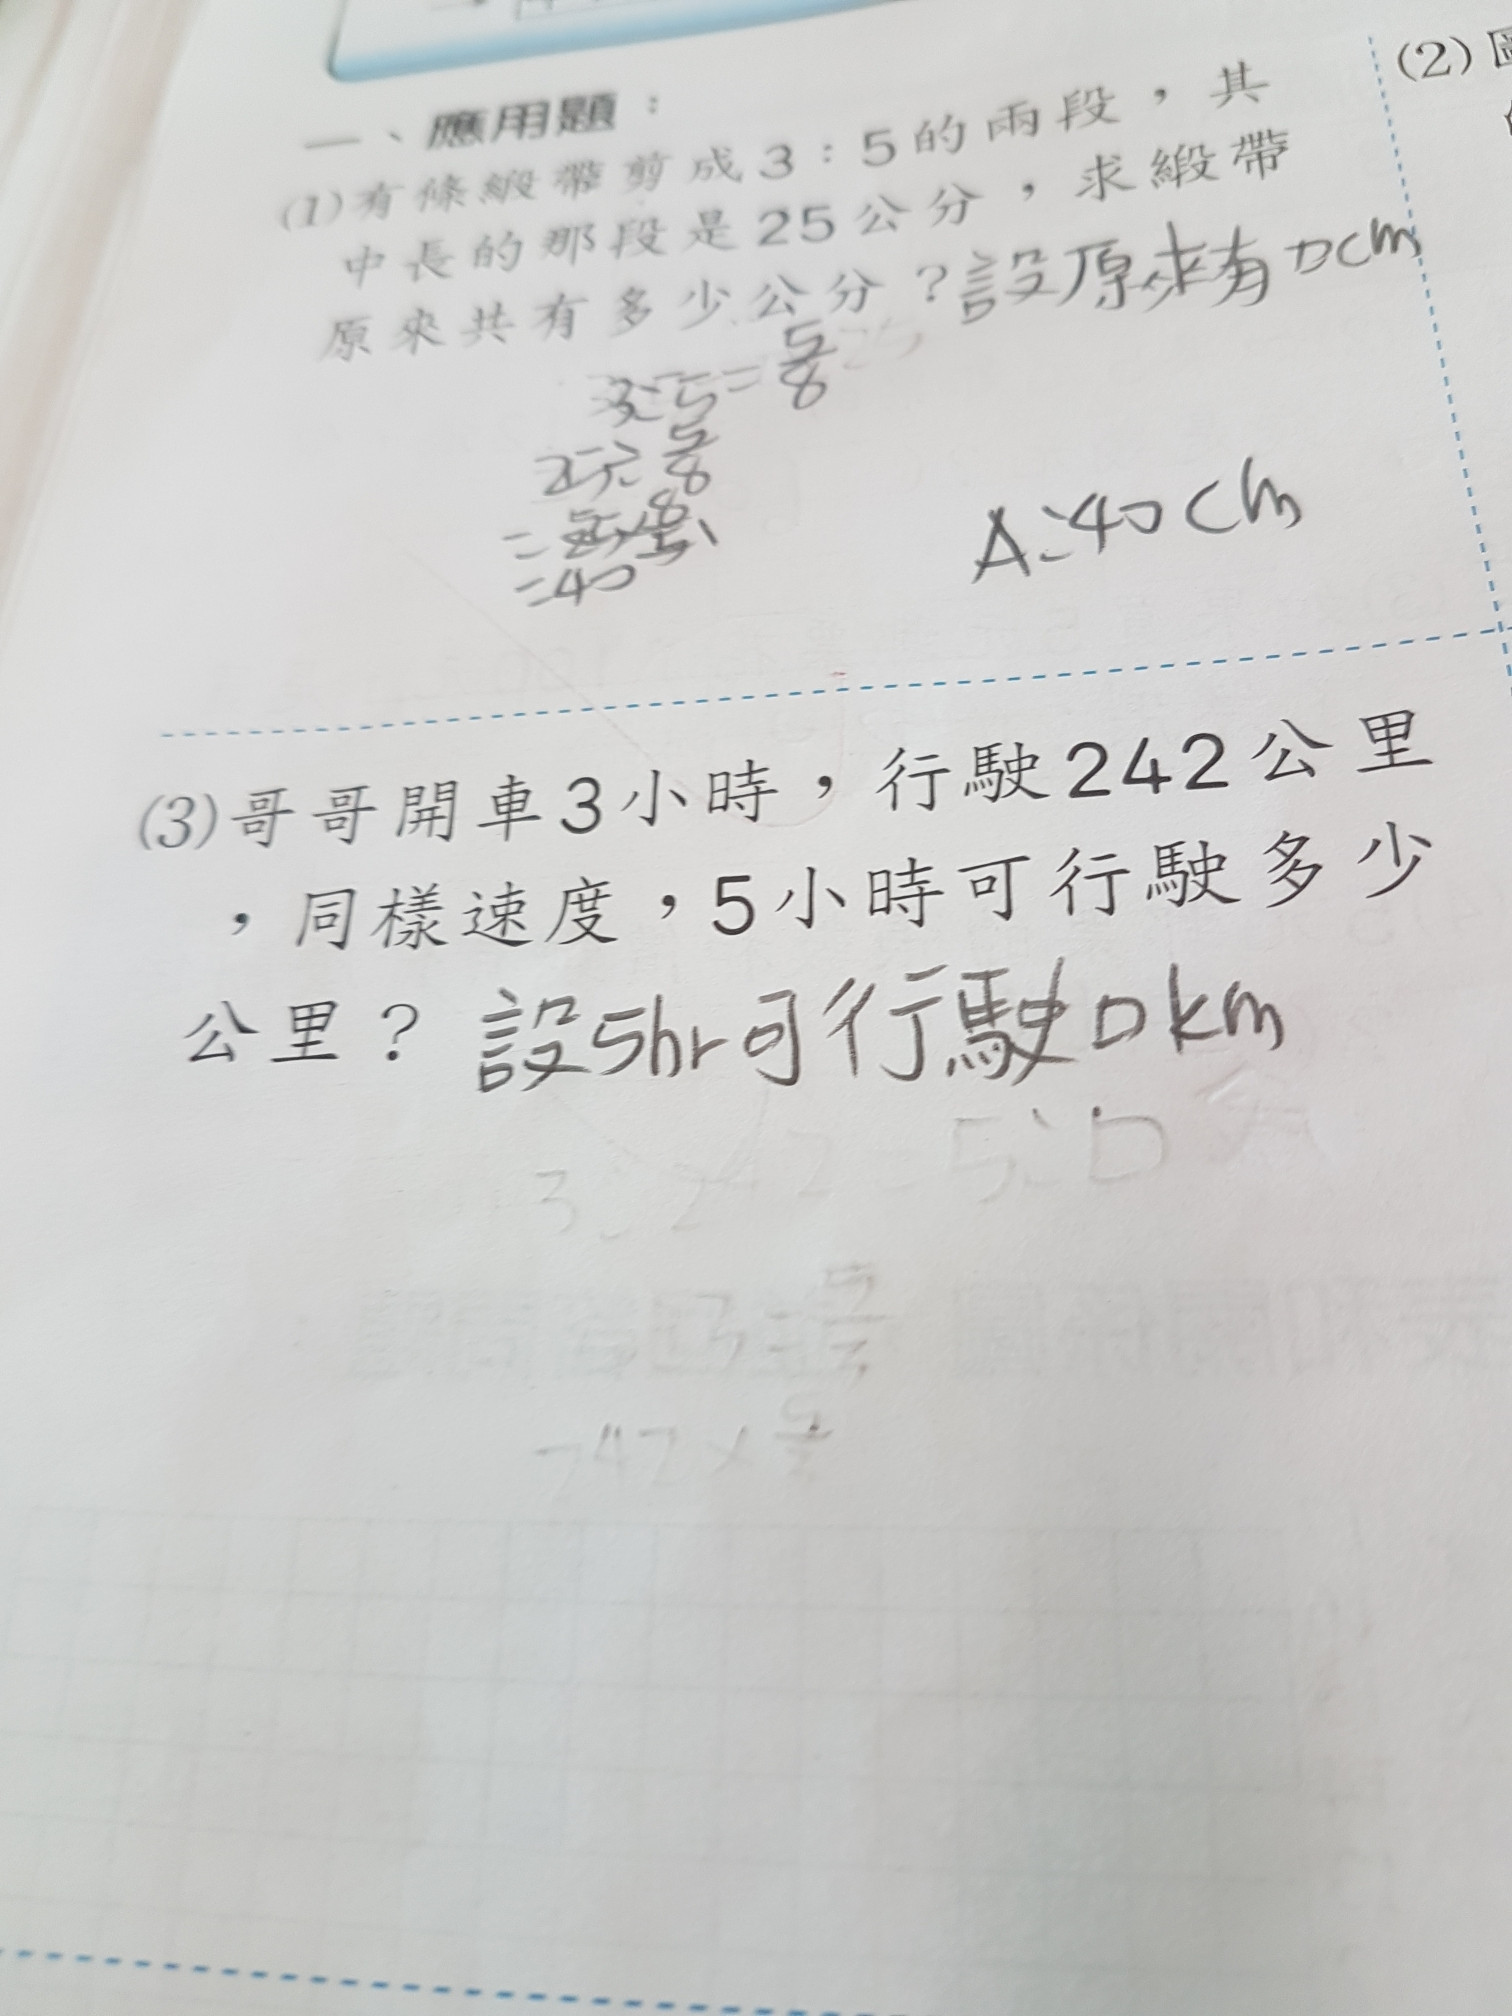 一、應用題：
(1)有條緞帶剪成3：5的兩段，其
中長的那段是25公分，求緞帶
原來共有多少公分？設原來有□cm
3:5=5/8
25÷5/8
=25×8/5
=40
A:40cm
(2)
(3)哥哥開車3小時，行駛242公里
，同樣速度，5小時可行駛多少
公里？設5hr可行駛□km
3:242=5:□
242×5/3